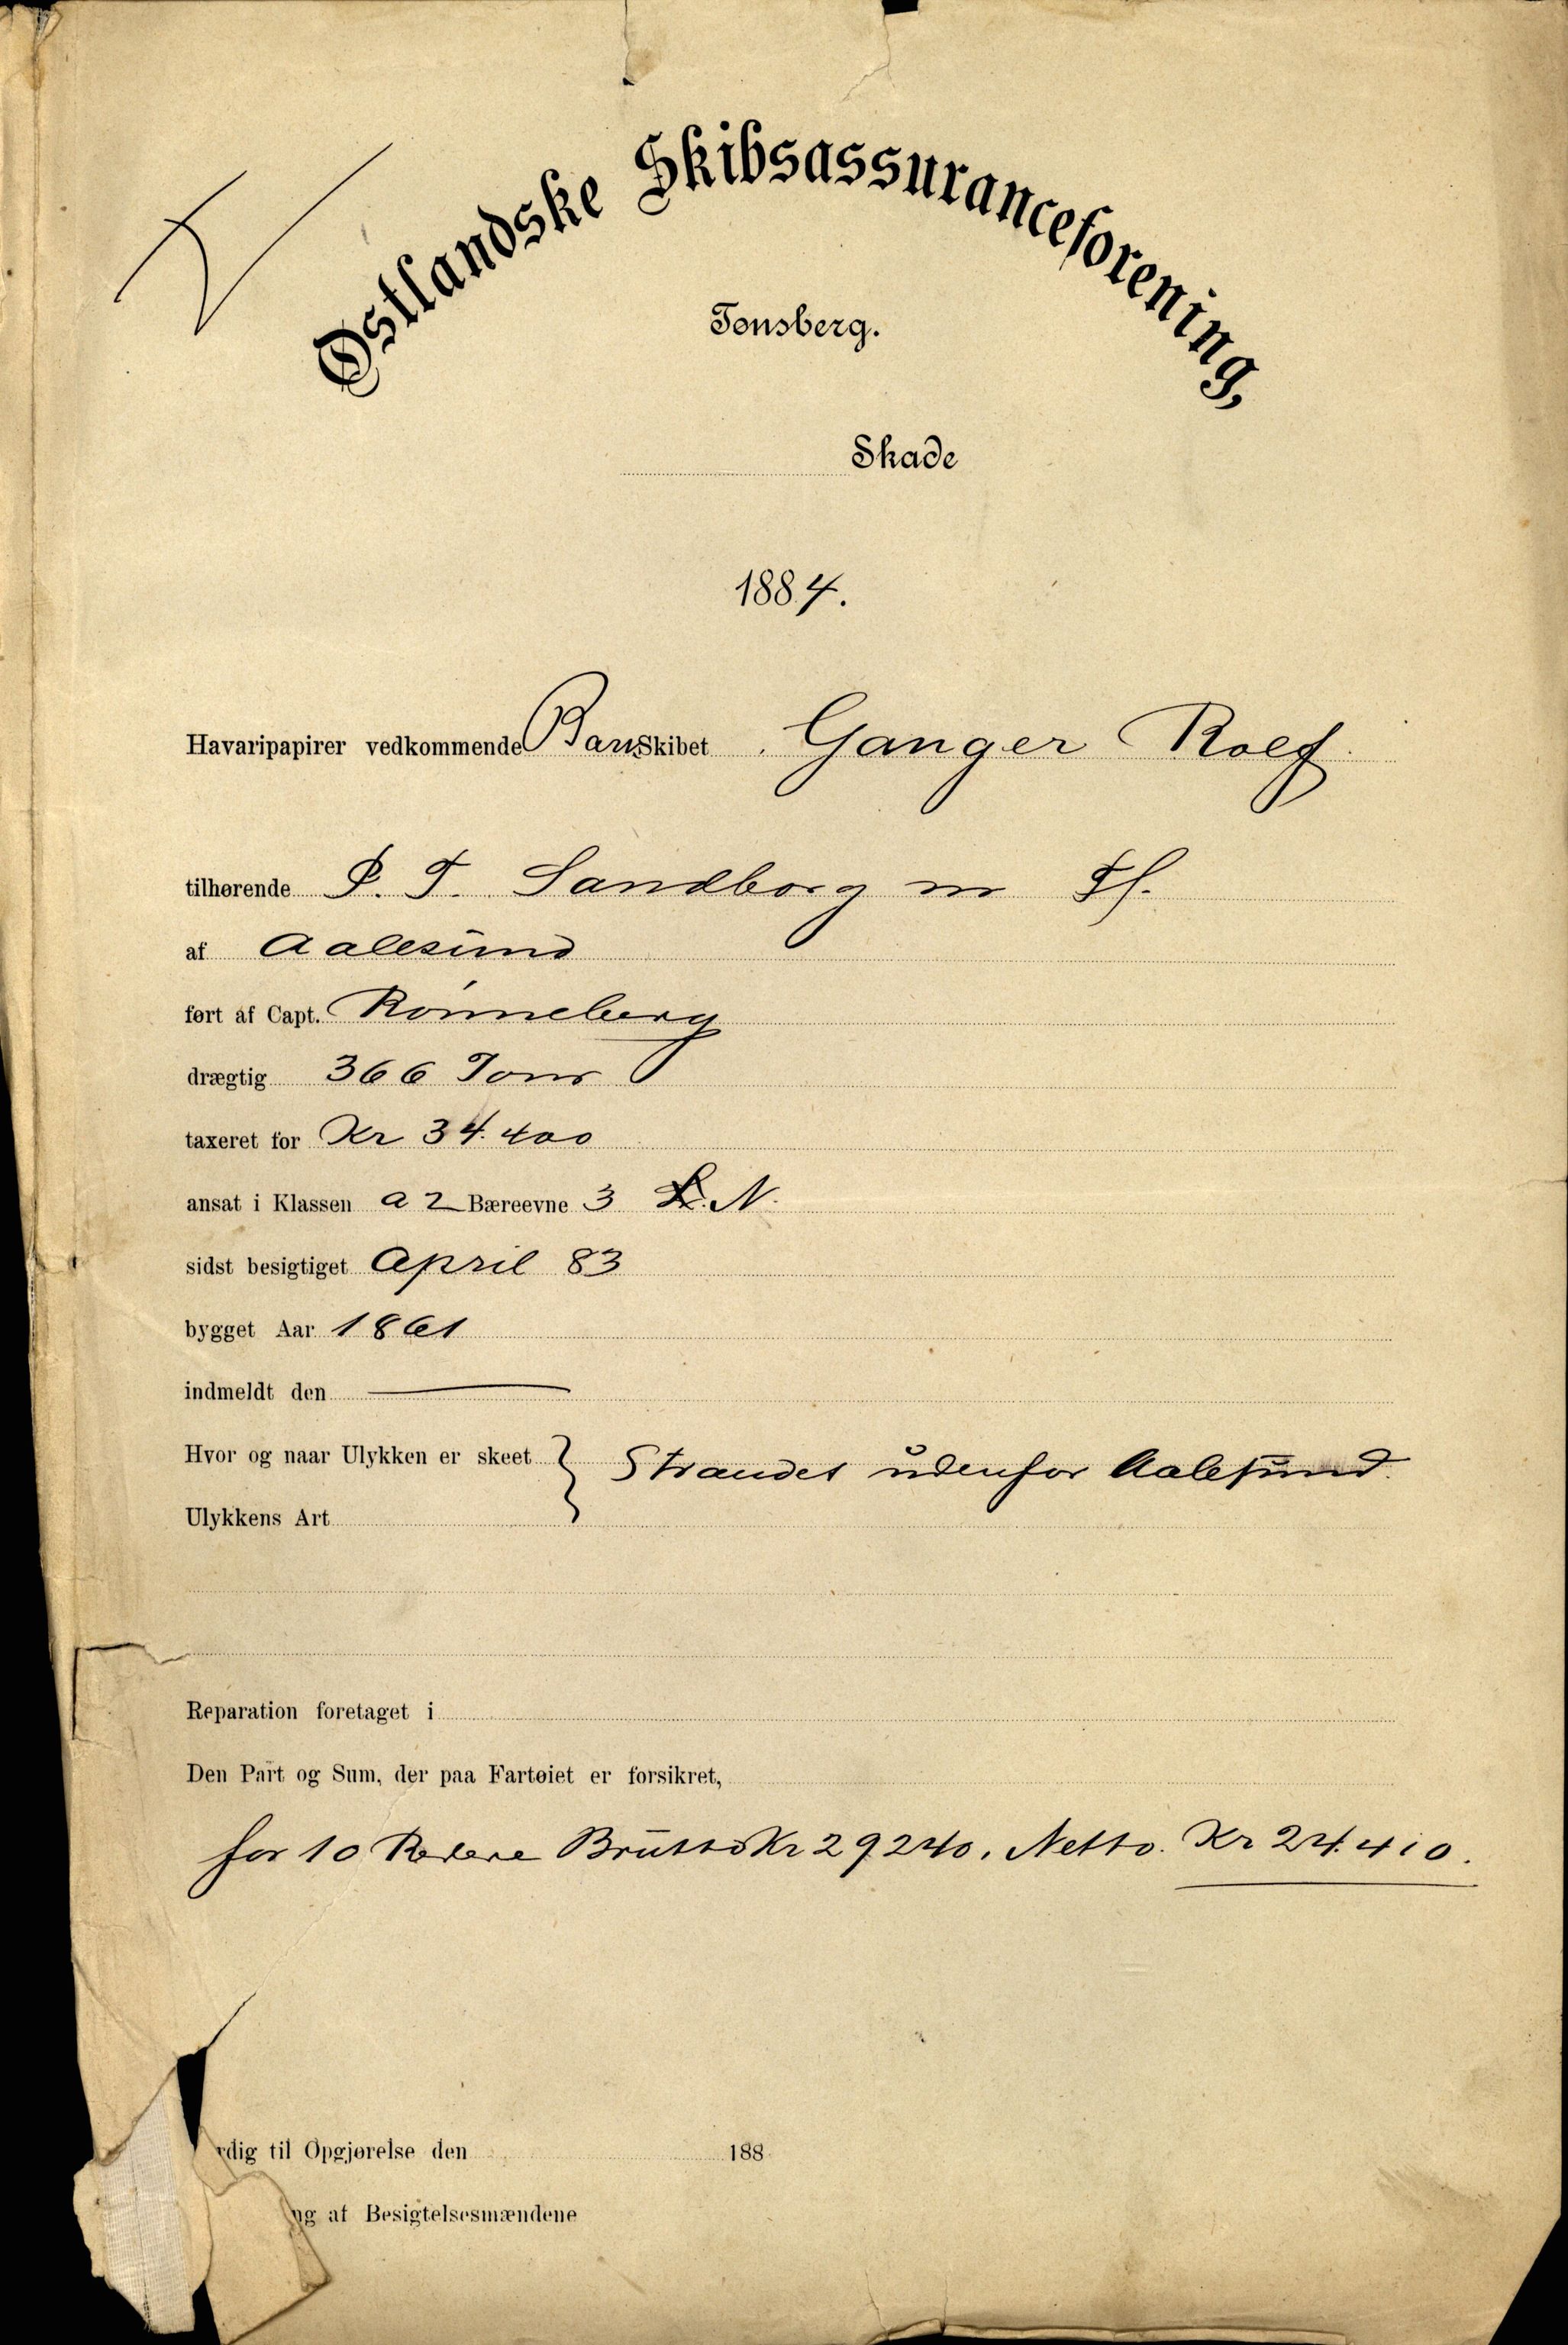 Østlandske Skibsassuranceforening,
Tønsberg.
Skade
1884.
Havaripapirer vedkommende Barkskibet Ganger Rolf
tilhørende P. T. Sandborg m Fl.
af Aalesund
ført af Capt. Rønneberg
drægtig 366 Tons
taxeret for Kr 34.400
ansat i Klassen a 2 Bæreevne 3 N.
sidst besigtiget April 83
bygget Aar 1861
indmeldt den
Hvor og naar Ulykken er skeet } Strandet udenfor Aalesund.
Ulykkens Art
Reparation foretaget i
Den Part og Sum, der paa Fartøiet er forsikret,
for 10 Redere Brutto Kr 29240. Netto. Kr 24.410.
rdig til Opgjørelse den 188
ng af Besigtelsesmændene